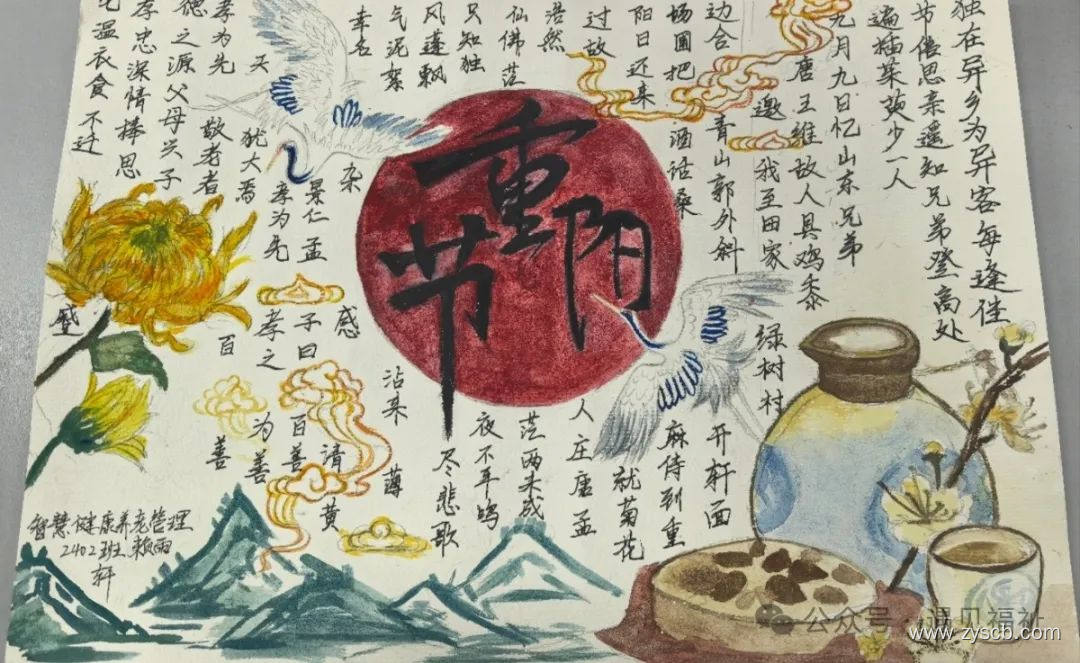 独在异乡为异客每逢佳
节倍思亲遥知兄弟登高处
遍插茱萸少一人
九月九日忆山东兄弟
唐王维故人具鸡黍
邀我至田家绿树村
边合青山郭外斜开轩面
场圃把酒话桑麻侍到重
阳日还来就菊花
过故人庄唐孟
浩然
仙佛茫茫两未成
只知独夜不平鸣
风蓬飘尽悲歌
气泥絮沾来薄
幸名
杂感清黄
景仁孟子曰百善
孝为先孝之为善
犹大焉百善
天
孝为先敬老者
德之源父母兴子
孝忠深情捧思
温衣食不迁
盛
重阳节
智慧健康养老管理
2402班赖雨
轩
公众号·遇见福祉
www.zyscb.com